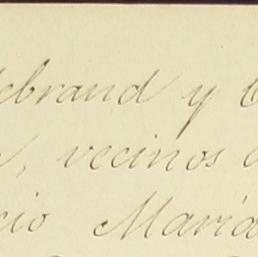 ebrand y
, vecinos
cio María